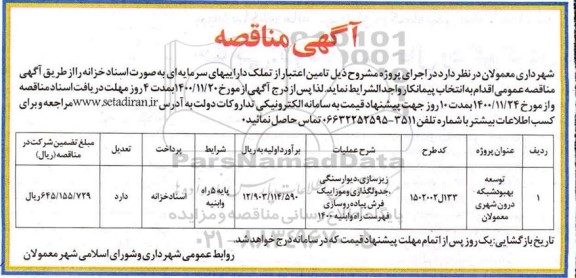 آگهی مناقصه
شهرداری معمولان در نظر دارد در اجرای پروژه مشروح ذیل تامین اعتبار از تملک داراییهای سرمایه ای به صورت اسناد خزانه را از طریق آگهی
مناقصه عمومی اقدام به انتخاب پیمانکار واجد الشرایط نماید. لذا پس از درج آگهی از مورخ ۱۴۰۰/۱۱/۲۰ بمدت ۴ روز مهلت دریافت اسناد مناقصه
و از مورخ ۱۴۰۰/۱۱/۲۴ بمدت ۱۰ روز جهت پیشنهاد قیمت به سامانه الکترونیکی تدارکات دولت به آدرس www.setadiran.ir مراجعه و برای
کسب اطلاعات بیشتر با شماره تلفن ۳۵۱۱-۰۶۶۳۲۲۵۲۵۹۵ تماس حاصل نمائید.
ردیف عنوان پروژه کد طرح شرح عملیات برآورد اولیه به ریال شرایط پرداخت تعدیل مبلغ تضمین شرکت در مناقصه (ریال)
۱ توسعه بهبود شبکه درون شهری معمولان ۱۵۰۲۰۰۲ل۱۳۳ زیرسازی، دیوار سنگی، جدولگذاری و موزاییک فرش پیاده روسازی فهرست راه و ابنیه ۱۴۰۰ ۱۲/۹۰۳/۱۱۴/۵۹۰ پایه ۵ راه وابنیه اسناد خزانه دارد ۶۴۵/۱۵۵/۷۲۹ ریال
تاریخ بازگشایی: یک روز پس از اتمام مهلت پیشنهاد قیمت که در سامانه درج خواهد شد.
روابط عمومی شهرداری و شورای اسلامی شهر معمولان
ParsNamadData
۰۲۱-۸۸۳۴۹۶۷۰-۵